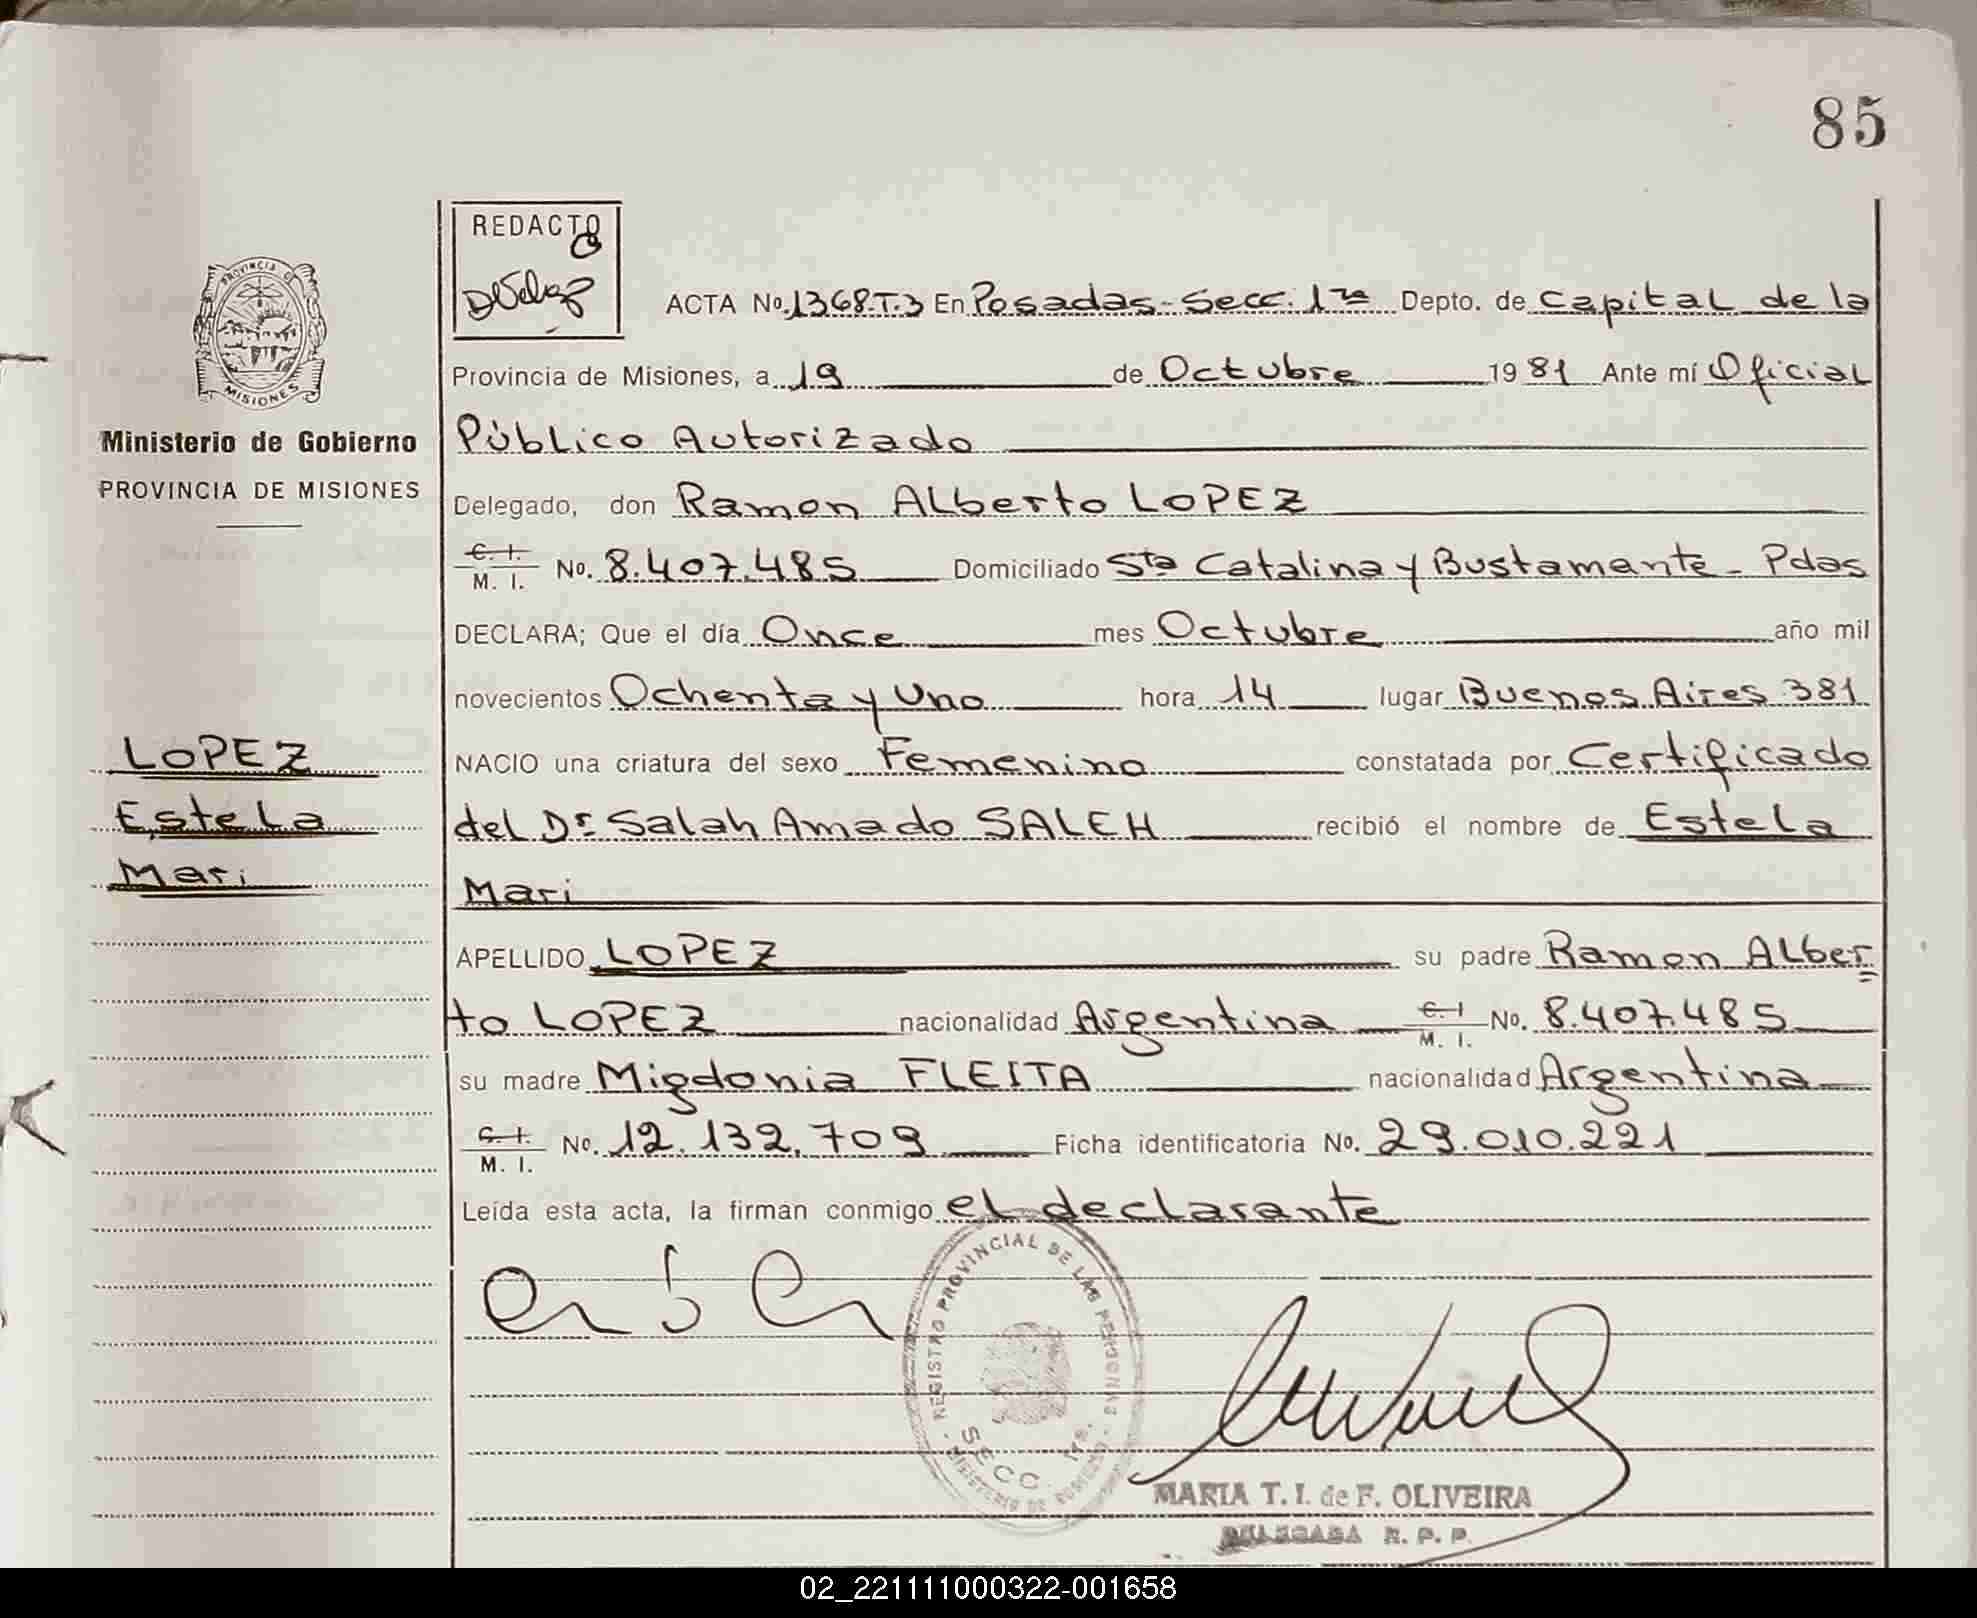 85
REDACTO
PROVINCIA DE
MISIONES
ACTA Nº. 1368.T.3 En Posadas - Secc. 1ra Depto. de Capital de la
Provincia de Misiones, a 19 de Octubre 1981 Ante mí Oficial
Ministerio de Gobierno
PROVINCIA DE MISIONES
Público Autorizado
Delegado, don Ramon Alberto LOPEZ
C. I. M. I. Nº. 8.407.485 Domiciliado Sta Catalina y Bustamante - Pdas
DECLARA; Que el día Once mes Octubre año mil
novecientos Ochenta y Uno hora 14 lugar Buenos Aires 381
LOPEZ
Estela
Mari
NACIO una criatura del sexo Femenino constatada por Certificado
del Dr. Salah Amado SALEH recibió el nombre de Estela
Mari
APELLIDO LOPEZ su padre Ramon Alber
to LOPEZ nacionalidad Argentina C. I M. I. Nº. 8.407.485
su madre Migdonia FLEITA nacionalidad Argentina
C. I. M. I. Nº. 12.132.709 Ficha identificatoria Nº. 29.010.221
Leída esta acta, la firman conmigo el declarante
REGISTRO PROVINCIAL DE LAS PERSONAS
SECC. 1ra.
MINISTERIO DE GOBIERNO
MARIA T. I. de F. OLIVEIRA
DELEGADA R. P. P.
02_221111000322-001658